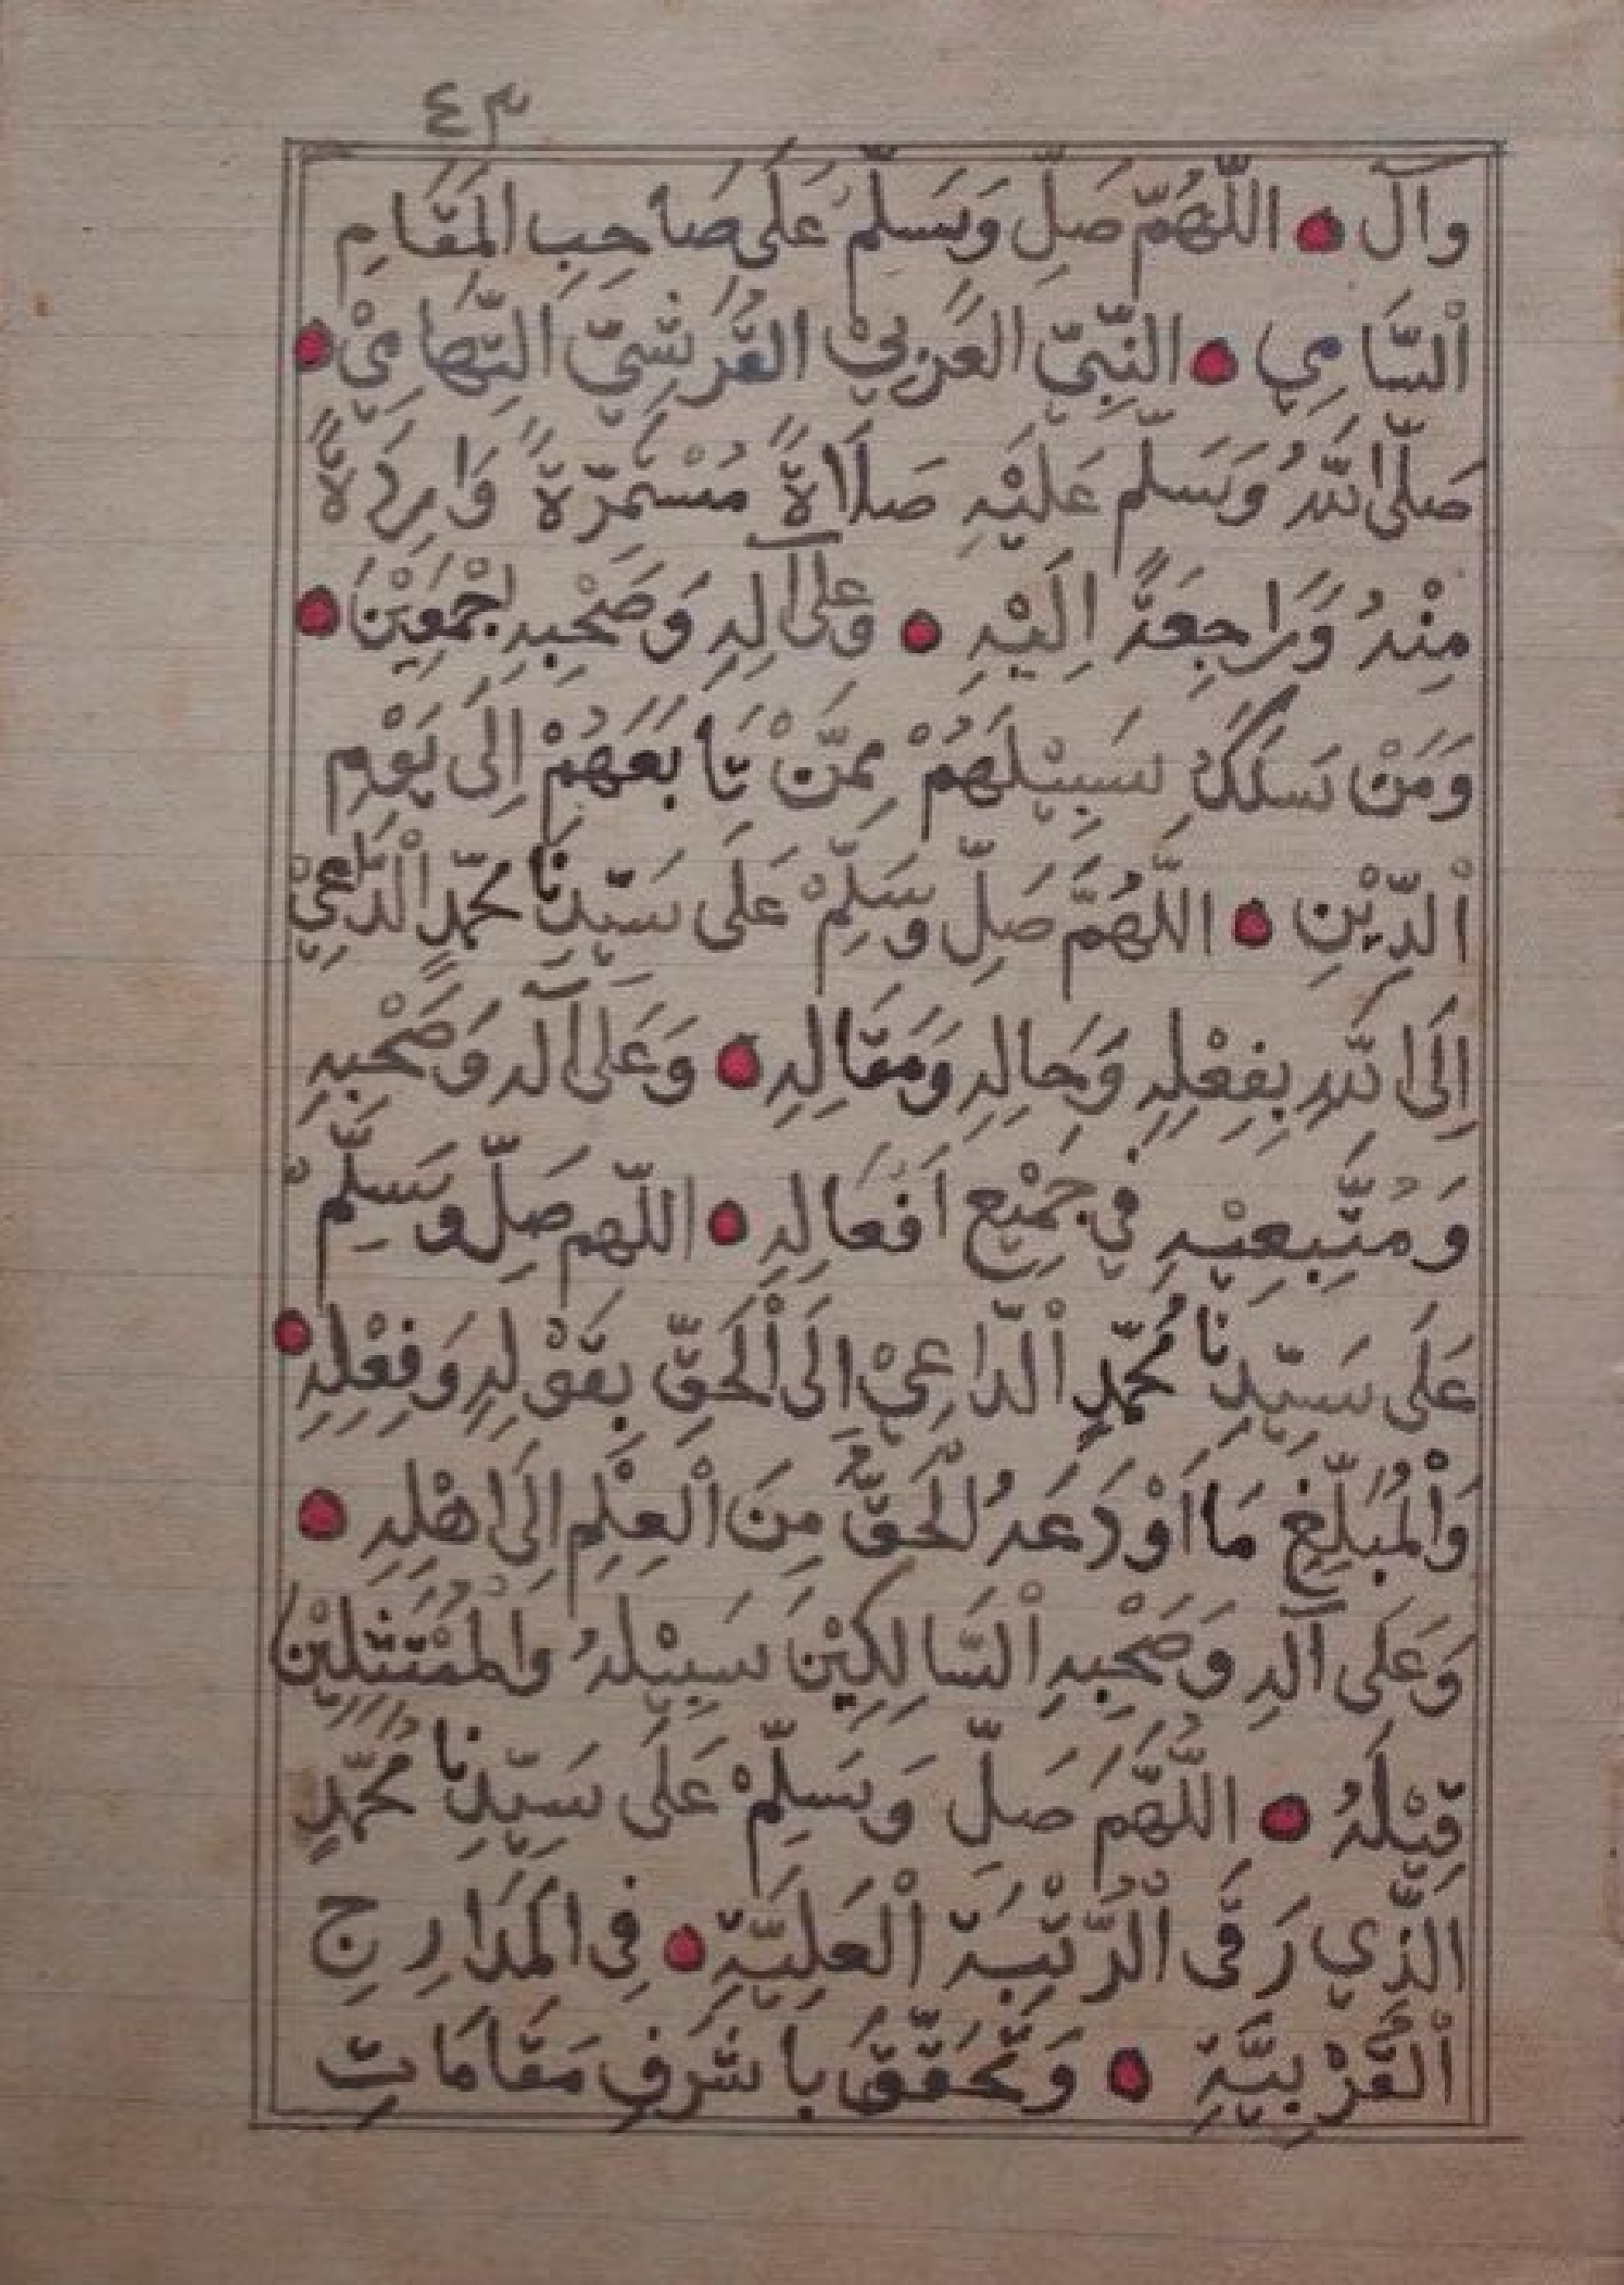 ٤٣
وَآلٓ ۝ اللّٰهُمَّ صَلِّ وَسَلِّمْ عَلَى صَاحِبِ الْمَقَامِ
اْلسَّامِي ۝ النَّبِيِّ الْعَرَبِيْ الْقُرَشِيِّ التِّهَامِيْ ۝
صَلَّى اللّٰهُ وَسَلَّمَ عَلَيْهِ صَلَاةً مُسْتَمِرَّةً وَارِدَةً
مِنْهُ وَرَاجِعَةً اِلَيْهِ ۝ وَعَلَى آلِهِ وَصَحْبِهِ اَجْمَعِيْنَ ۝
وَمَنْ سَلَكَ سَبِيْلَهُمْ مِمَّنْ تَابَعَهُمْ اِلَى يَوْمِ
اْلدِّيْنِ ۝ اللّٰهُمَّ صَلِّ وَسَلِّمْ عَلَى سَيِّدِنَا مُحَمَّدٍ اْلدَّاعِيْ
اِلَى اللّٰهِ بِفِعْلِهِ وَحَالِهِ وَمَقَالِهِ ۝ وَعَلَى آلِهِ وَصَحْبِهِ
وَمُتَّبِعِيْهِ فِي جَمِيْعِ اَفْعَالِهِ ۝ اللّٰهُمَّ صَلِّ وَسَلِّمْ
عَلَى سَيِّدِنَا مُحَمَّدٍ اْلدَّاعِيْ اِلَى اْلحَقِّ بِقَوْلِهِ وَفِعْلِهِ ۝
وَاْلمُبَلِّغِ مَا اَوْدَعَهُ الْحَقُّ مِنَ اْلعِلْمِ اِلَى اَهْلِهِ ۝
وَعَلَى آلِهِ وَصَحْبِهِ اْلسَّالِكِيْنَ سَبِيْلَهُ وَاْلمُمْتَثِلِيْنَ
قِيْلَهُ ۝ اللّٰهُمَّ صَلِّ وَسَلِّمْ عَلَى سَيِّدِنَا مُحَمَّدٍ
الَّذِي رَقَى اْلرُّتْبَةَ اْلعَلِيَّةِ ۝ فِى الْمَدَارِجِ
اْلقُرْبِيَّةِ ۝ وَتَحَقَّقَ بِاَشْرَفِ مَقَامَاتِ